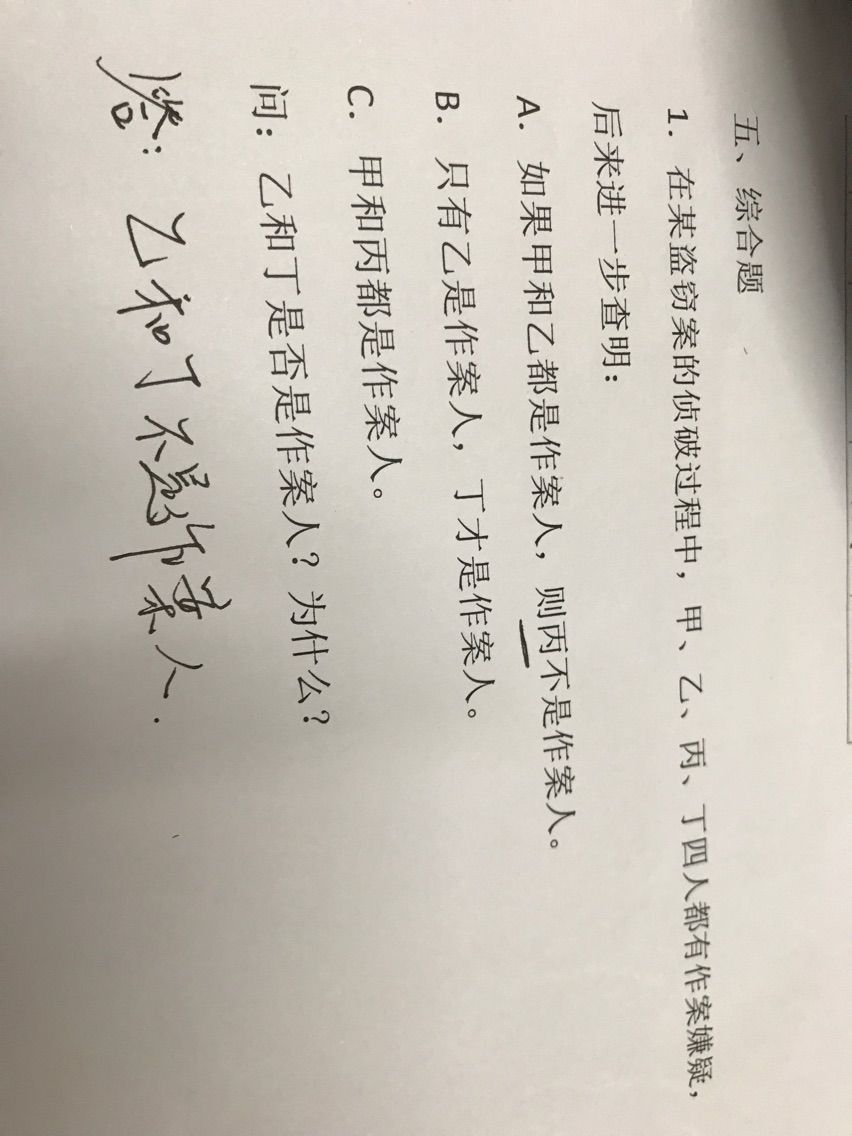 五、综合题
1. 在某盗窃案的侦破过程中，甲、乙、丙、丁四人都有作案嫌疑，
后来进一步查明：
A. 如果甲和乙都是作案人，则丙不是作案人。
B. 只有乙是作案人，丁才是作案人。
C. 甲和丙都是作案人。
问：乙和丁是否是作案人？为什么？
答：乙和丁不是作案人.